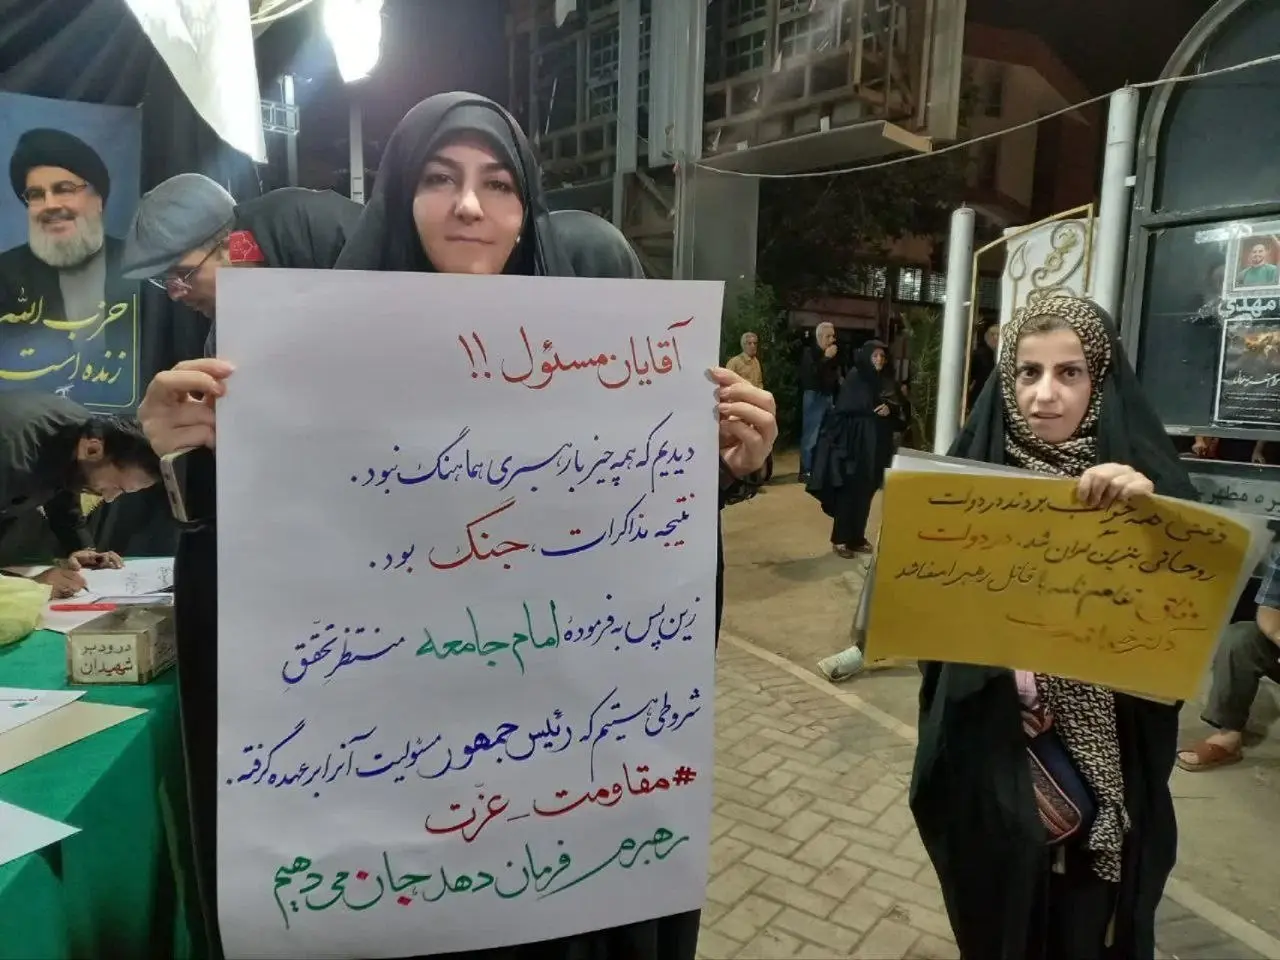 آقایان مسئول !!
دیدیم که همه چیز با رهبری هماهنگ نبود.
نتیجه مذاکرات، جنگ بود.
زین پس به فرمودهٔ امام جامعه منتظر تحقّقِ
شروطی هستیم که رئیس جمهور مسئولیت آنرا بر عهده گرفته.
#مقاومت_عزّت
رهبرم فرمان دهد جان می دهیم
وقتی همه خواب بودند در دولت
روحانی بنزین گران شد. در دولت
تفاهم نامه با قاتل رهبر امضا شد
حزب الله
زنده است
درود بر
شهیدان
مهدی